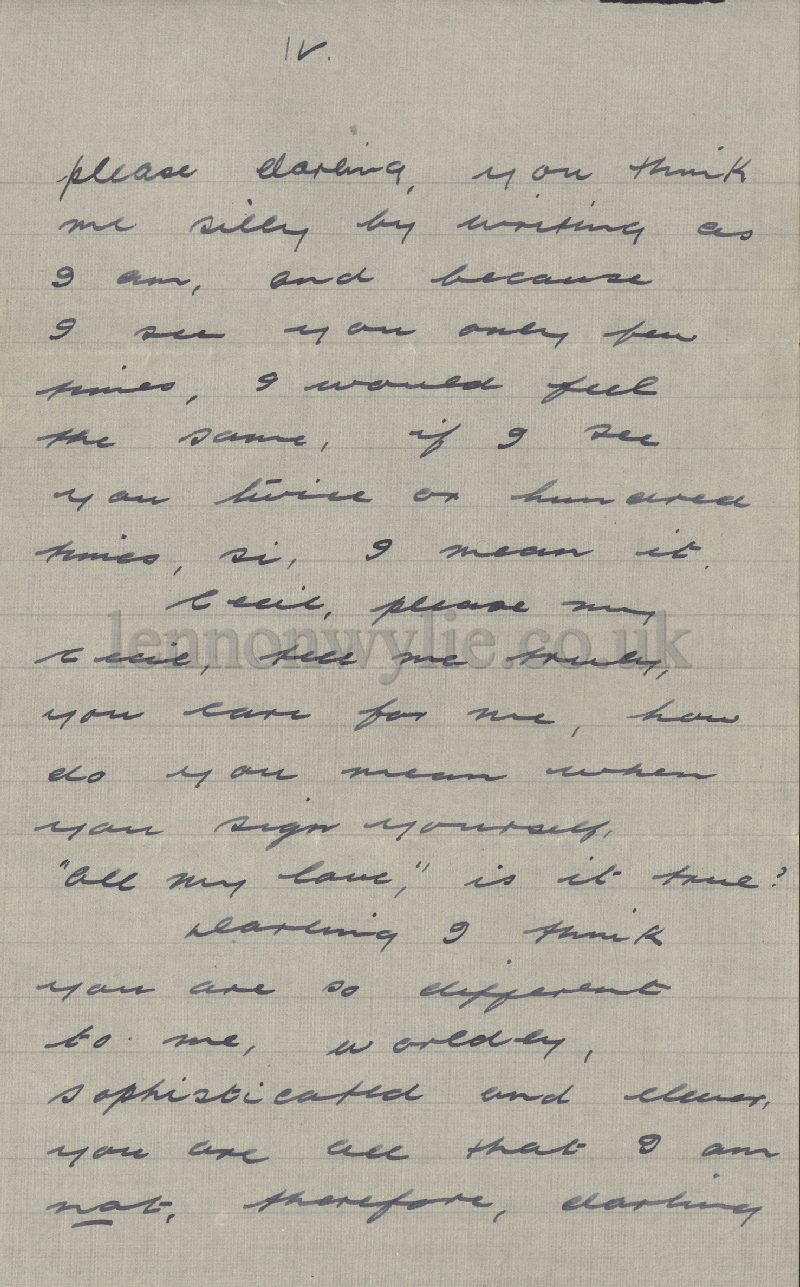 IV.
please darling, you think
me silly by writing as
I am, and because
I see you only few
times, I would feel
the same, if I see
you twice or hundred
times, si, I mean it.
Cecil, please my
lennonwylie.co.uk
Cecil, tell me truly,
you care for me, how
do you mean when
you sign yourself,
"all my love," is it true?
Darling I think
you are so different
to me, worldly,
sophisticated and clever,
you are all that I am
not, therefore, darling